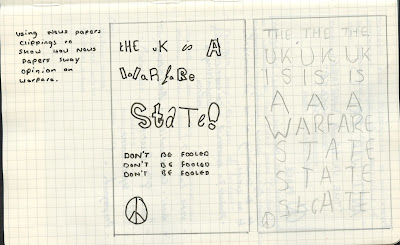 Using News papers
clippings to
show how News
papers sway
opinion on
warfare.
tHE uK is A
WaRfaRe
StaTe!
DON'T BE FOOLED
DON'T BE FOOLED
DON'T BE FOOLED
THE THE THE
UK UK UK
IS IS IS
A A A
WARFARE
STATE
STATE
STATE